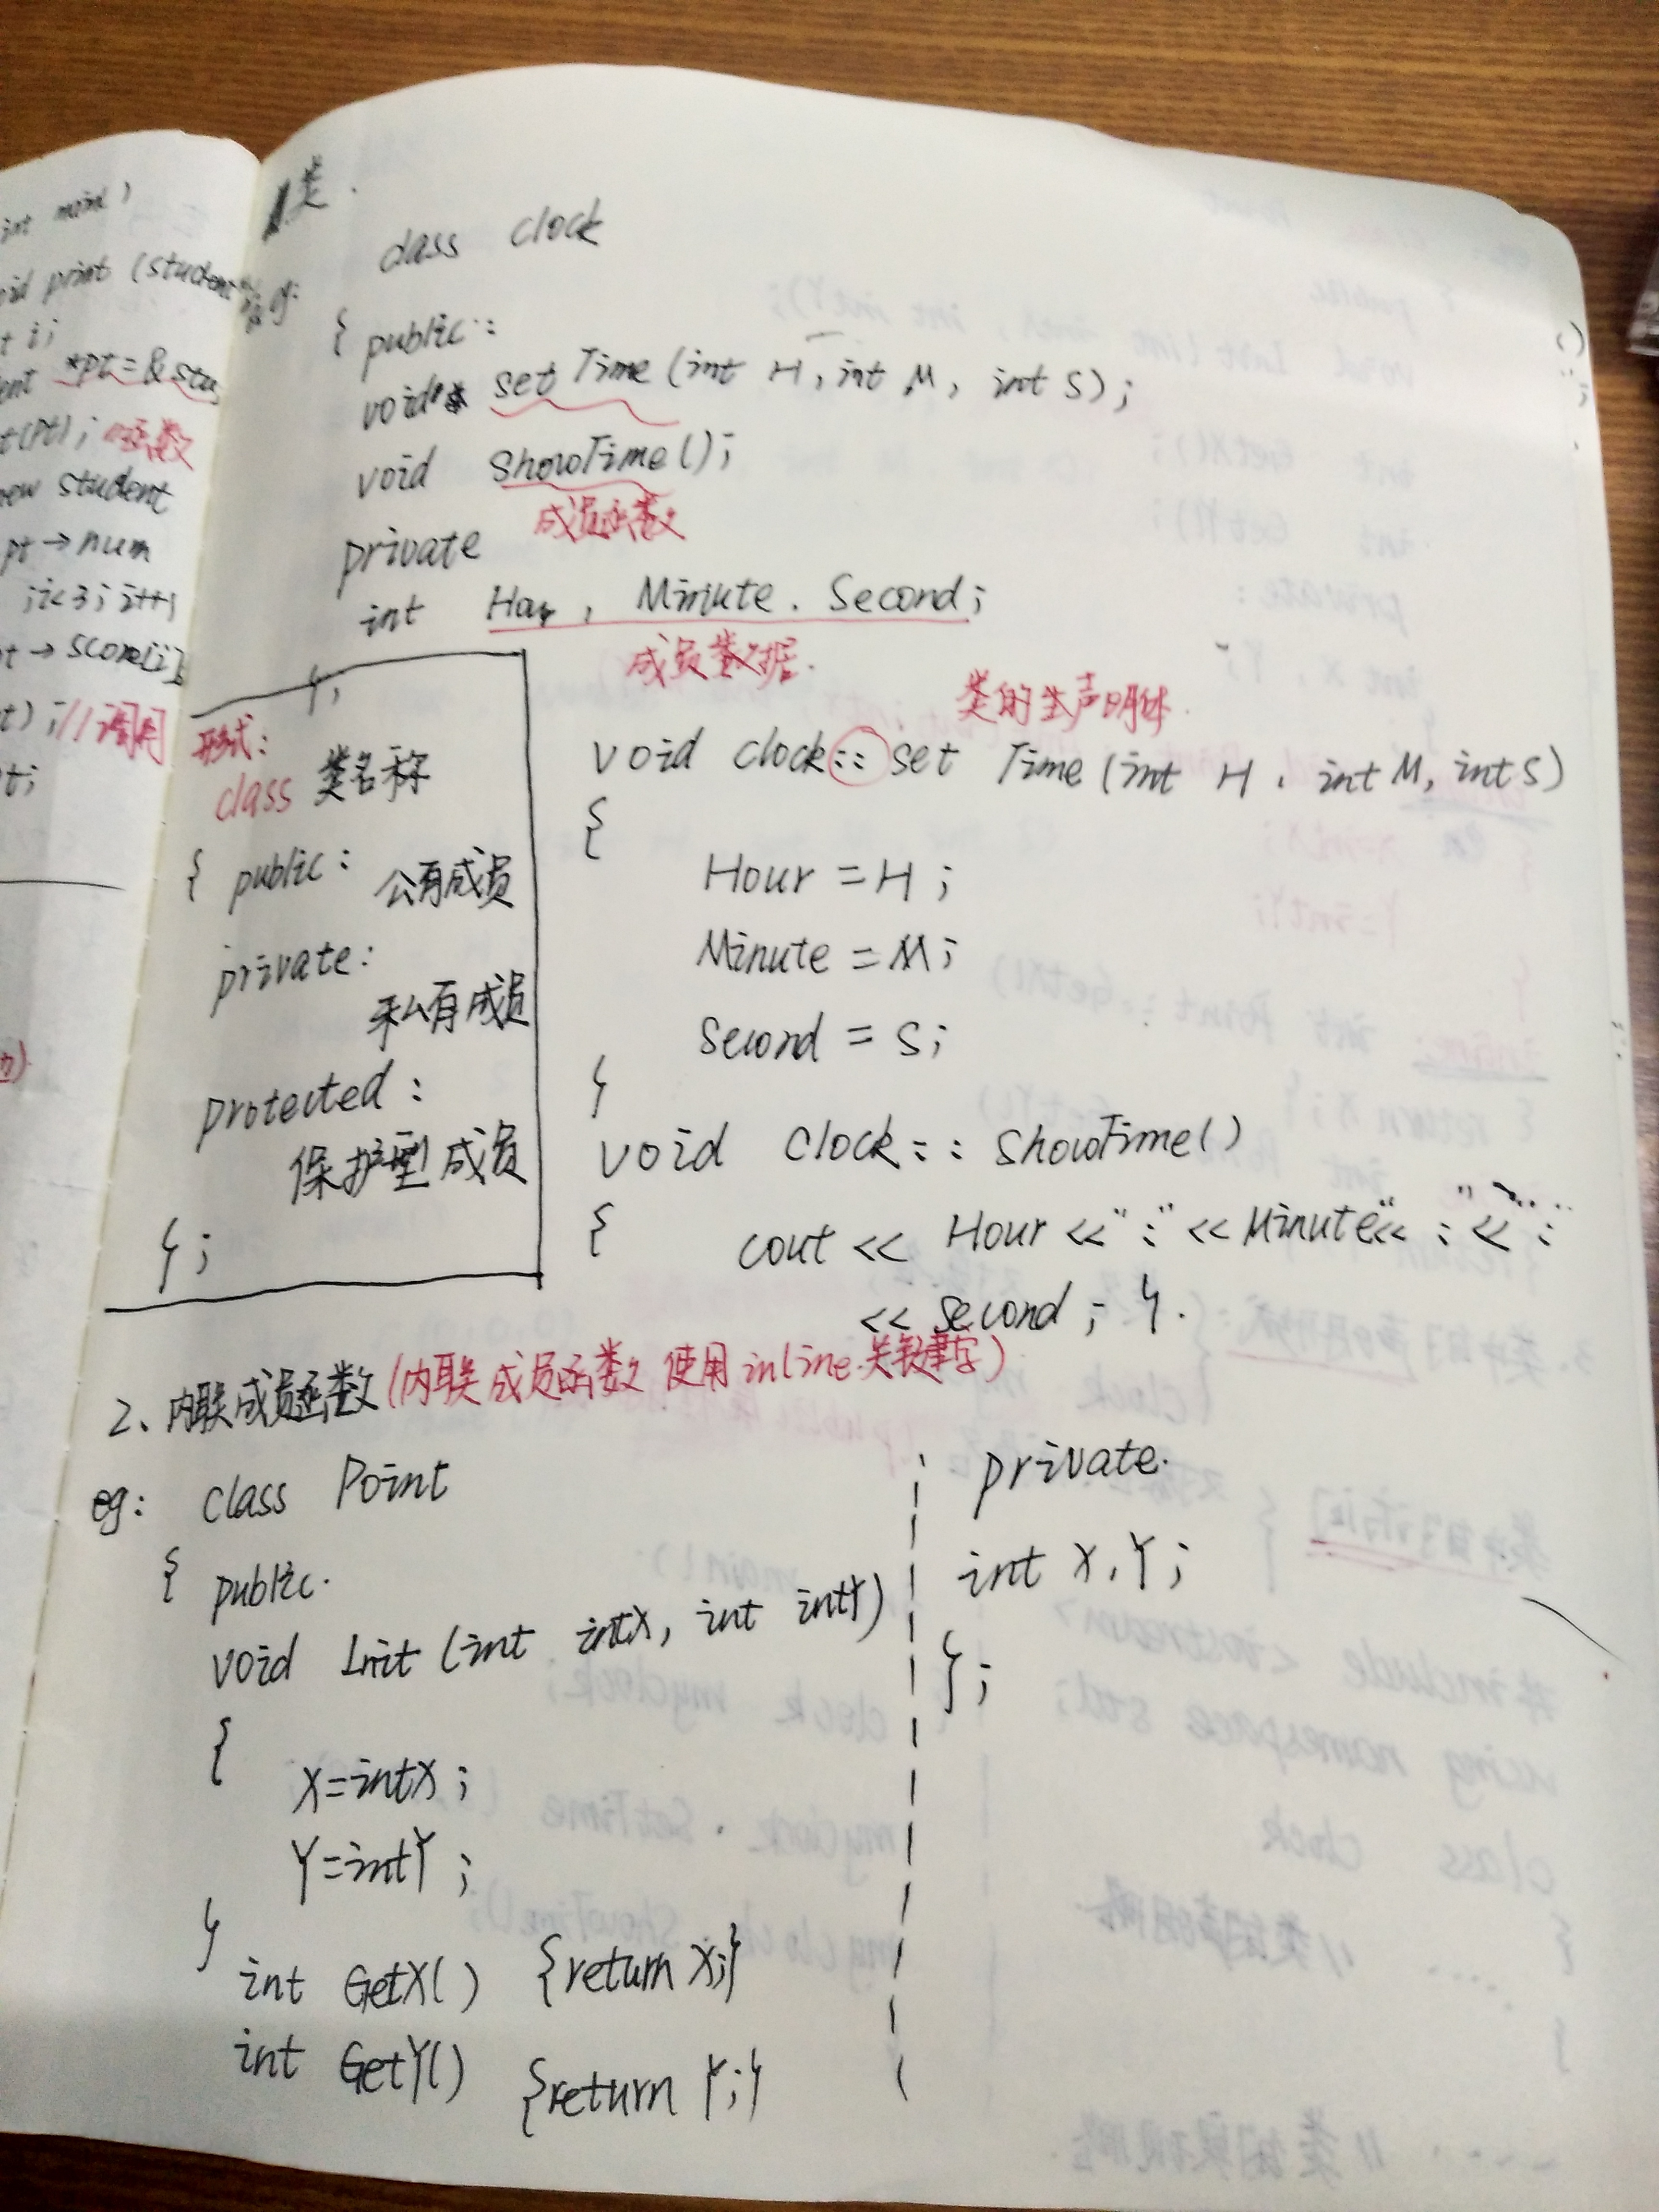 int main()
void print (student
t i;
*pt=&stu
t(pt); //函数
new student
pt→num
;i<3;i++)
t→score[i];
t);//调用
1类.
eg:
class clock
{ public:
void set Time (int H, int M, int S);
void ShowTime();
成员函数
private
int Hour, Minute. Second;
成员数据.
};
形式:
class 类名称
{ public:
公有成员
private:
私有成员
protected:
保护型成员
};
void clock::set Time (int H, int M, int S)
{
Hour =H;
Minute =M;
Second = S;
}
void Clock:: ShowTime()
{ cout << Hour <<":"<<Minute
<< second; }.
2、内联成员函数(内联成员函数 使用inline.关键字)
eg: class Point
{ public.
void Init (int intX, int intY)
{
X=intX;
Y=intY;
}
int GetX() {return X;}
int GetY() {return Y;}
private.
int X,Y;
};